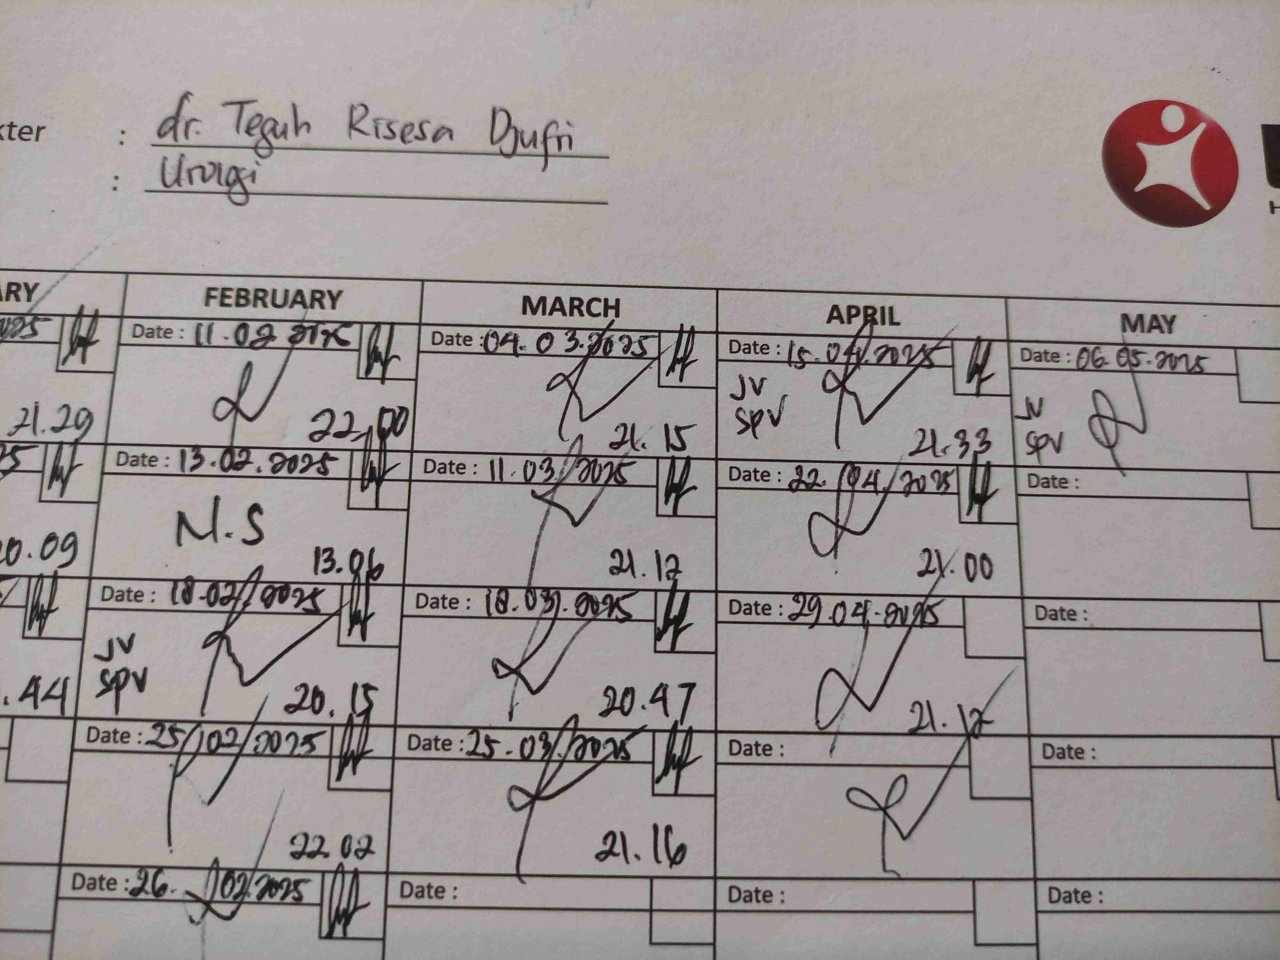 : dr. Teguh Risesa Djufri
: Urologi
FEBRUARY MARCH APRIL MAY
Date : 11.02.2025 Date : 04.03.2025 Date : 15.04.2025 Date : 06.05.2025
21.29 22.00 21.15 JV SPV 21.33 JV SPV
Date : 13.02.2025 Date : 11.03.2025 Date : 22.04.2025 Date :
N.S
13.06 21.12 21.00
Date : 18.02.2025 Date : 18.03.2025 Date : 29.04.2025 Date :
JV
SPV
20.15 20.47 21.12
Date : 25/02/2025 Date : 25.03.2025 Date : Date :
22.02 21.16
Date : 26.02.2025 Date : Date : Date :